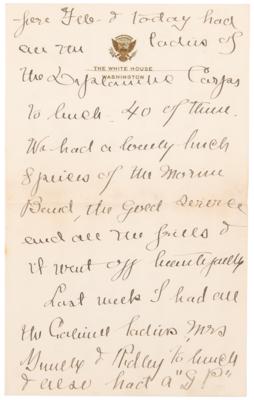 here Feb. & today had
all the ladies of
THE WHITE HOUSE
WASHINGTON
the Diplomatic Corps
to lunch. 40 of them.
We had a lovely lunch
8 pieces of the Marine
Band, the Gold service
and all the frills &
it went off beautifully
Last week I had all
the Cabinet ladies, Mrs
& Ridley to lunch
& also had a "G.P."